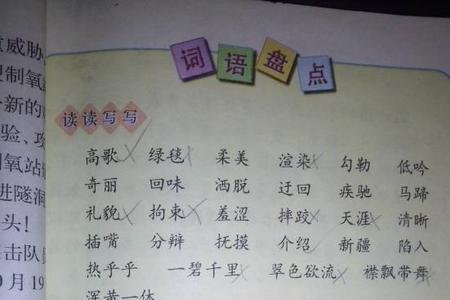 词语盘点
读读写写
高歌 绿毯 柔美 渲染 勾勒 低吟
奇丽 回味 洒脱 迂回 疾驰 马蹄
礼貌 拘束 羞涩 摔跤 天涯 清晰
插嘴 分辩 抚摸 介绍 新疆 陷入
热乎乎 一碧千里 翠色欲流 襟飘带舞
浑黄一体
威胁
制氧
新的
验、攻
氧站
进隧洞
头！
击队
月19